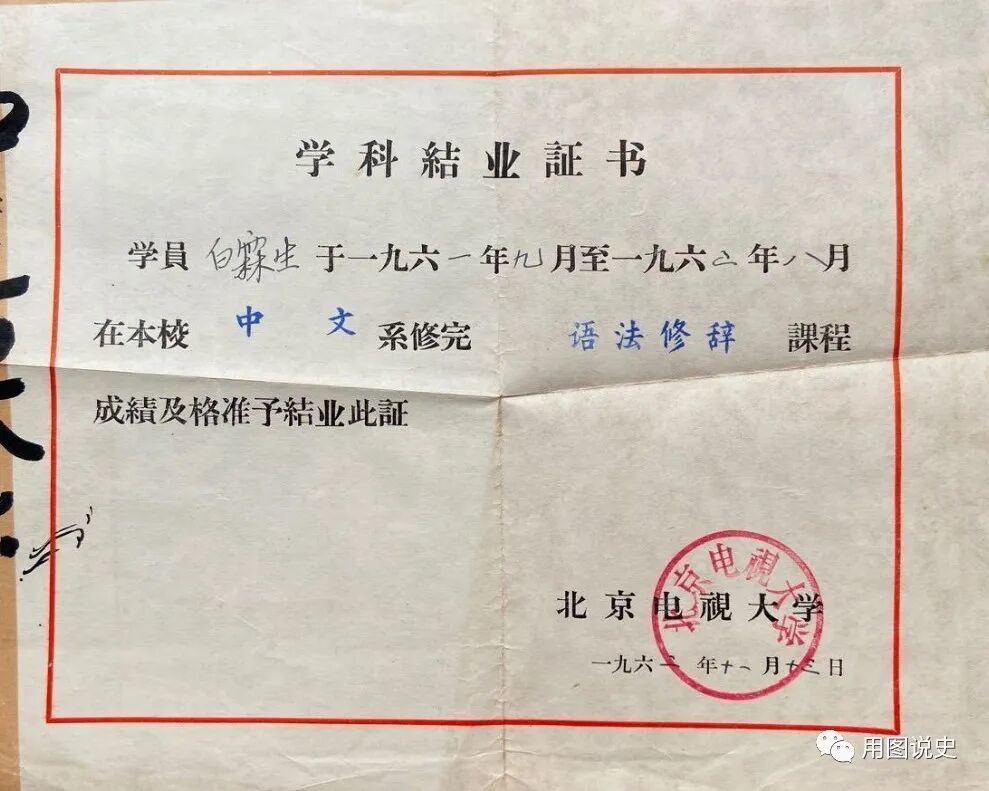 学科結业証书
学員 白霖生 于一九六一年九月至一九六二年八月
在本校 中文 系修完 语法修辞 課程
成績及格准予結业此証
北京电視大学
北京电視大学
一九六二年十一月十三日
用图说史